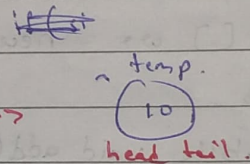 temp.
10
head tail